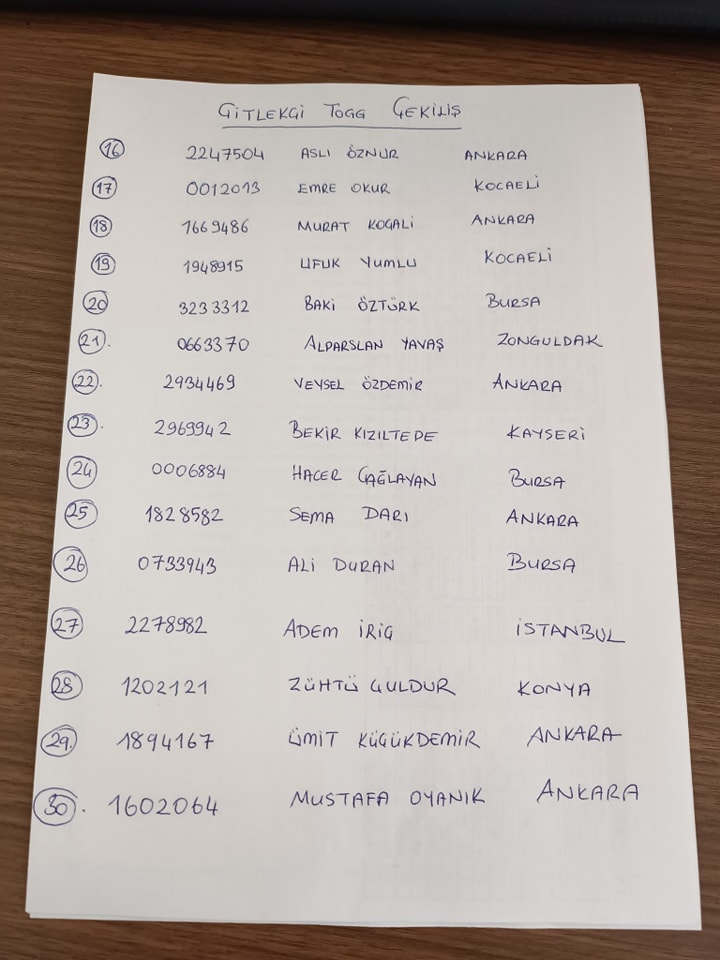 GİTLEKÇİ TOGG ÇEKİLİŞ
16 2247504 ASLI ÖZNUR ANKARA
17 0012013 EMRE OKUR KOCAELİ
18 1669486 MURAT KOÇALİ ANKARA
19 1948915 UFUK YUMLU KOCAELİ
20 3233312 BAKİ ÖZTÜRK BURSA
21. 0663370 ALPARSLAN YAVAŞ ZONGULDAK
22. 2934469 VEYSEL ÖZDEMİR ANKARA
23. 2969942 BEKİR KIZILTEPE KAYSERİ
24 0006884 HACER ÇAĞLAYAN BURSA
25 1828582 SEMA DARI ANKARA
26 0733943 ALİ DURAN BURSA
27 2278982 ADEM İRİÇ İSTANBUL
28 1202121 ZÜHTÜ GULDUR KONYA
29. 1894167 ÜMİT KÜÇÜKDEMİR ANKARA
30. 1602064 MUSTAFA OYANIK ANKARA